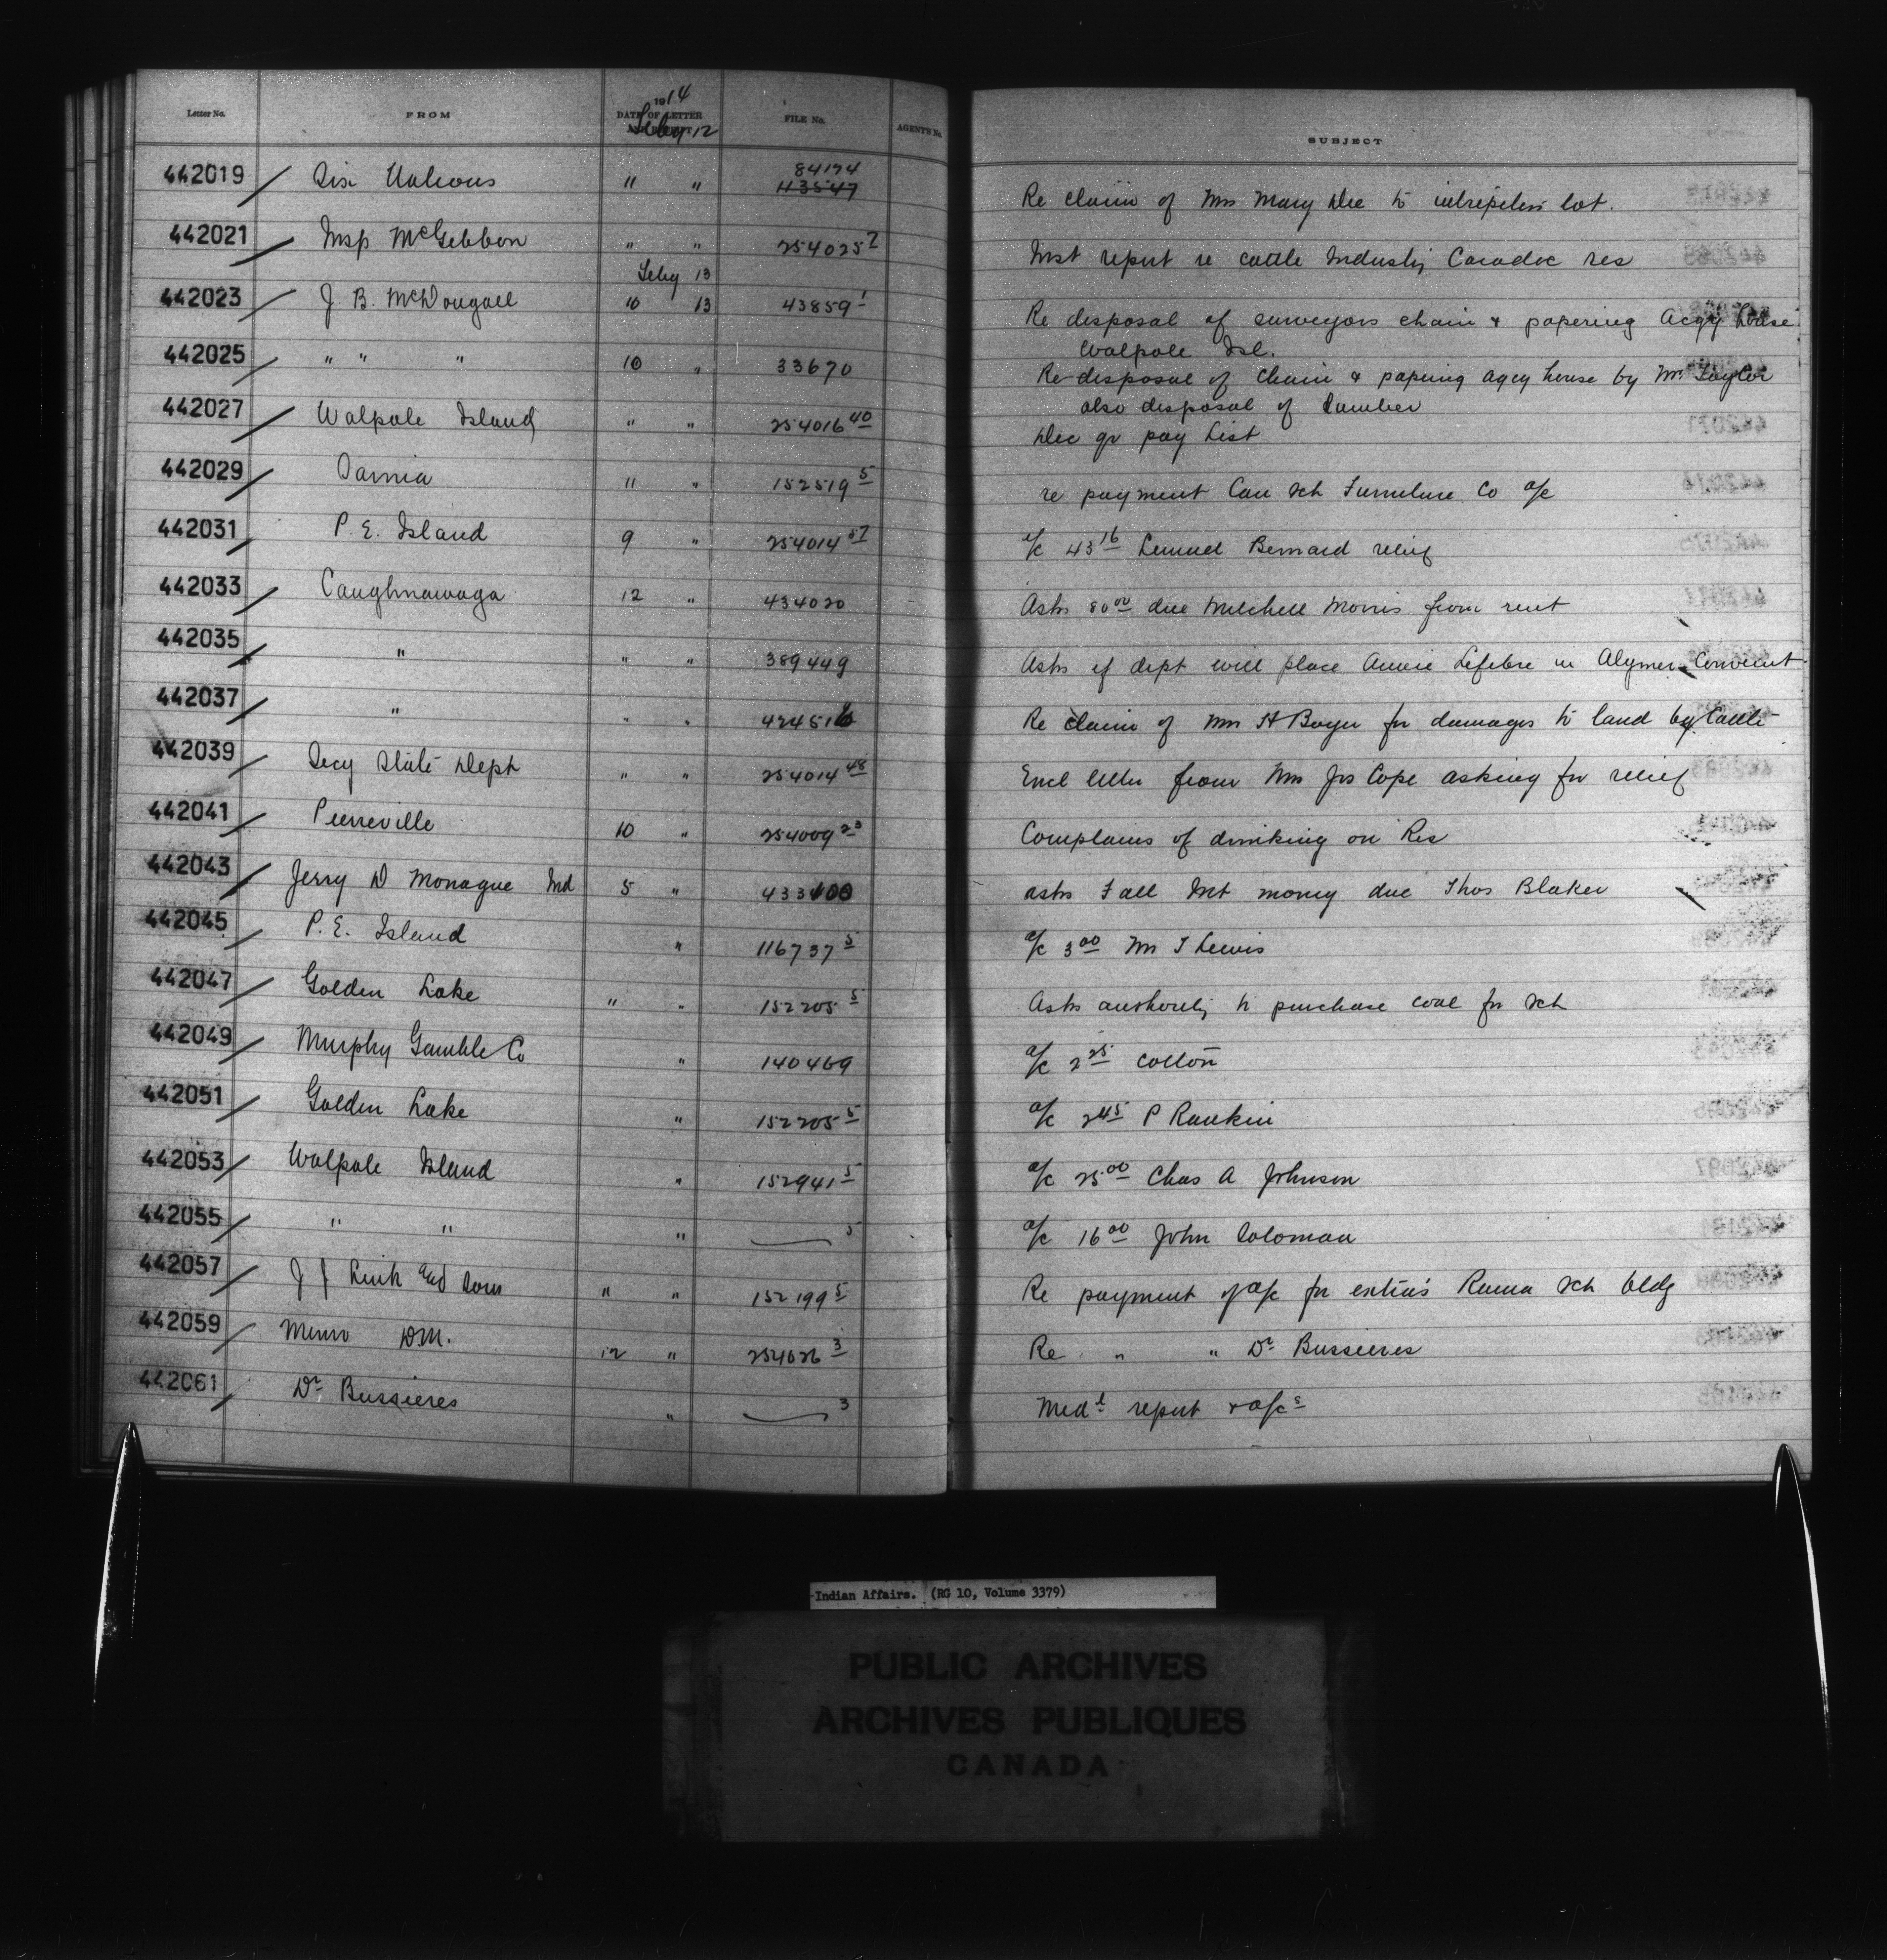 Letter No. FROM 1914 DATE OF LETTER AND RECEIPT Feby 12 FILE No. AGENT'S No. SUBJECT
442019 Six Nations " " 84174 43547 Re claim of Mrs Mary Dee to lot.
442021 Insp McGibbon " " 254025 7 Inst report re cattle Industry Caradoc res
Feby 13
442023 J. B. McDougall 10 13 43859 1 Re disposal of surveyors chain & papering Acgy house
Walpole Isl.
442025 " " " 10 " 33670 Re disposal of chain & papering agcy house by Mr Taylor
also disposal of Lumber
442027 Walpole Island " " 254016 40 Dec qr pay List
442029 Sarnia 11 " 152519 5 re payment Can Sch Furniture Co a/c
442031 P. E. Island 9 " 254014 57 a/c 43 16 Lemuel Bernard relief
442033 Caughnawaga 12 " 434020 Asks 80 00 due Mitchell Morris from rent
442035 " " " 389449 Asks if dept will place Annie Lefebre in Alymer Convent
442037 " " " 424516 Re claim of Mrs H Boyer for damages to land by Cattle
442039 Secy State Dept " " 254014 48 Encl letter from Mrs Jos Cope asking for relief
442041 Pierreville 10 " 254009 23 Complains of drinking on Res
442043 Jerry D Monague Ind 5 " 433400 asks Fall Int money due Thos Blaker
442045 P. E. Island " 116737 5 a/c 3 00 Mr T Lewis
442047 Golden Lake " " 152205 5 Asks authority to purchase coal for Sch
442049 Murphy Gamble Co " 140469 a/c 2 25 cotton
442051 Golden Lake " 152205 5 a/c 2 45 P Rankin
442053 Walpole Island " 152941 5 a/c 25 00 Chas A Johnson
442055 " " " 5 a/c 16 00 John Soloman
442057 J J and Sons " " 152199 5 Re payment of a/c for extras Rama Sch bldg
442059 Memo D.M. 12 " 254026 3 Re " " Dr Bussieres
442061 Dr Bussieres " 3 Medl report & a/cs
Indian Affairs. (RG 10, Volume 3379)
PUBLIC ARCHIVES
ARCHIVES PUBLIQUES
CANADA